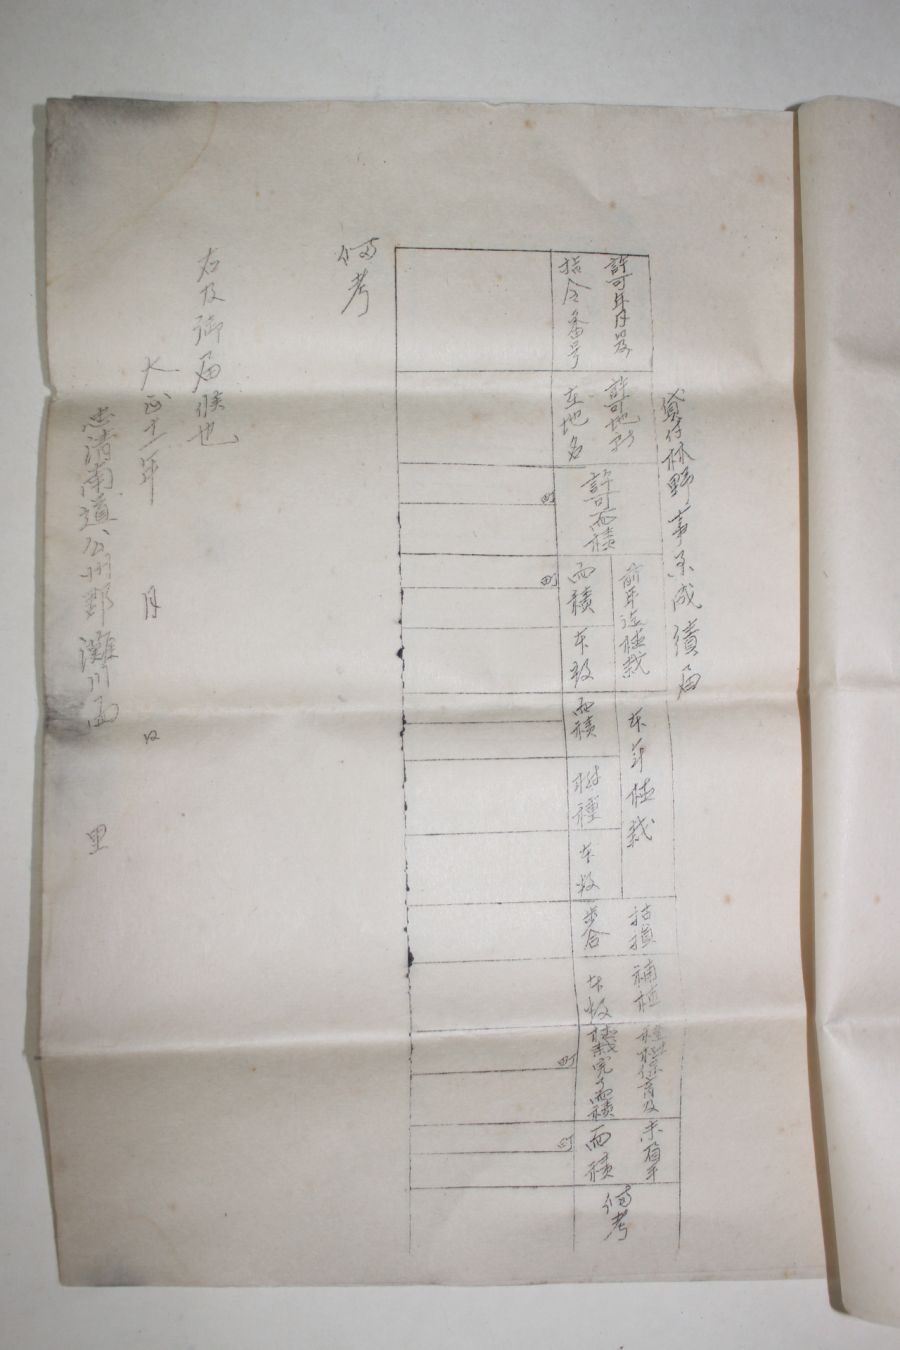 貸付林野事業成績届
許可年月日及
指令番号
許可地所
在地名
許可面積
町
前年迄植栽
面積
町
本数
本年植栽
面積
樹種
本数
枯損
歩合
補植
本数
植栽完了面積
町
面積
町
備考
備考
右及御届候也
大正十一年 月 日
忠清南道公州郡灘川面 里